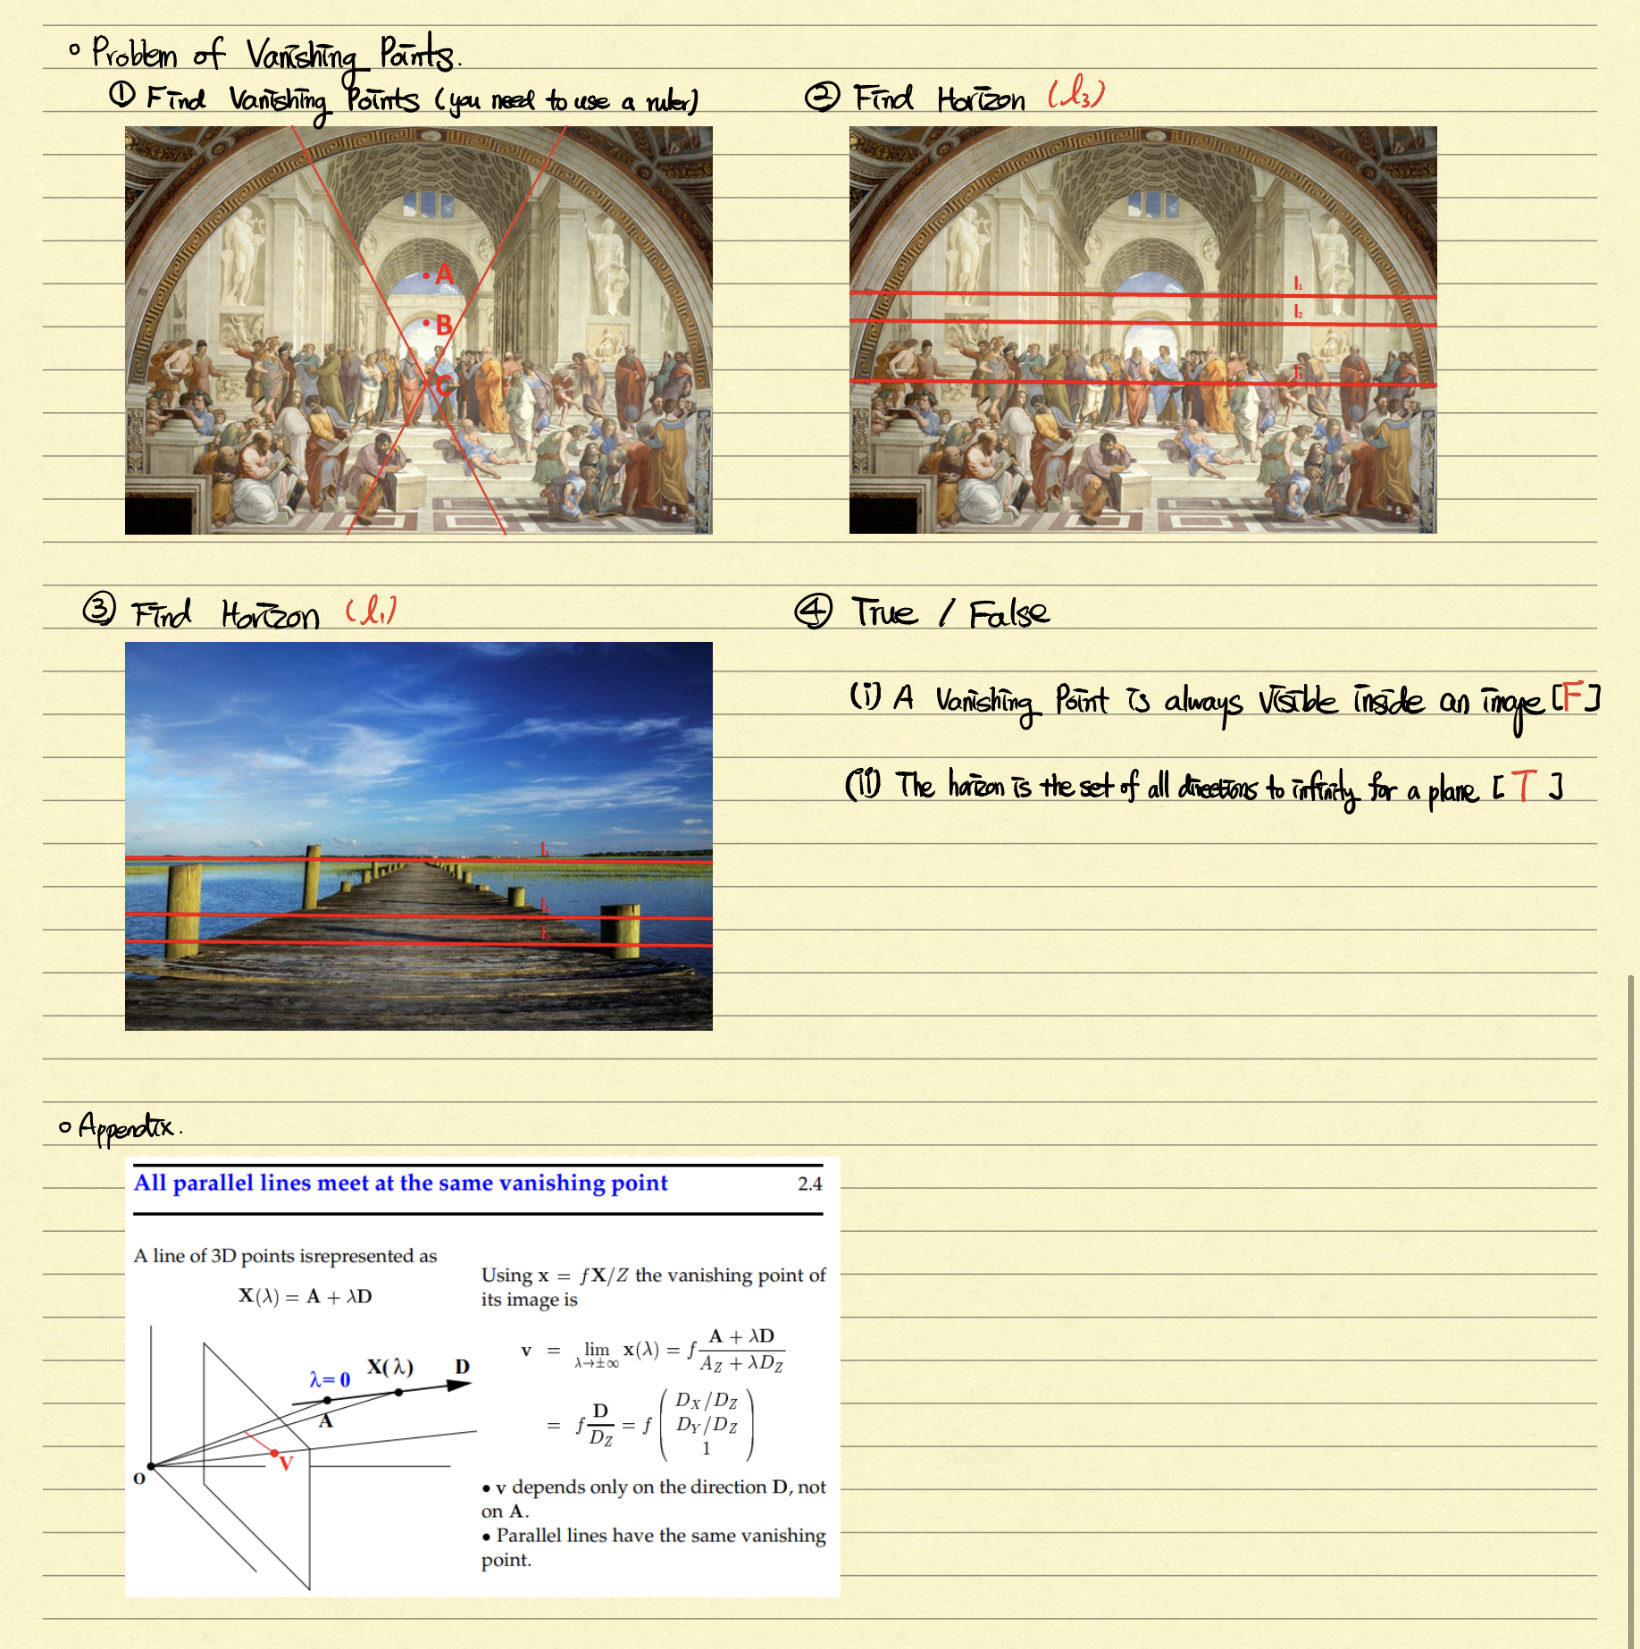 Problem of Vanishing Points.
① Find Vanishing Points (you need to use a ruler)
A
B
C
② Find Horizon (l₃)
l₁
l₂
③ Find Horizon (l₁)
④ True / False
(i) A Vanishing Point is always visible inside an image [F]
(ii) The horizon is the set of all directions to infinity for a plane [T]
Appendix.
All parallel lines meet at the same vanishing point 2.4
A line of 3D points isrepresented as
X(λ) = A + λD
λ=0 X(λ) D
A
O
V
Using x = fX/Z the vanishing point of
its image is
v = lim λ→±∞ x(λ) = f (A + λD)/(A_Z + λD_Z)
= f D/D_Z = f (D_X/D_Z
D_Y/D_Z
1)
• v depends only on the direction D, not
on A.
• Parallel lines have the same vanishing
point.